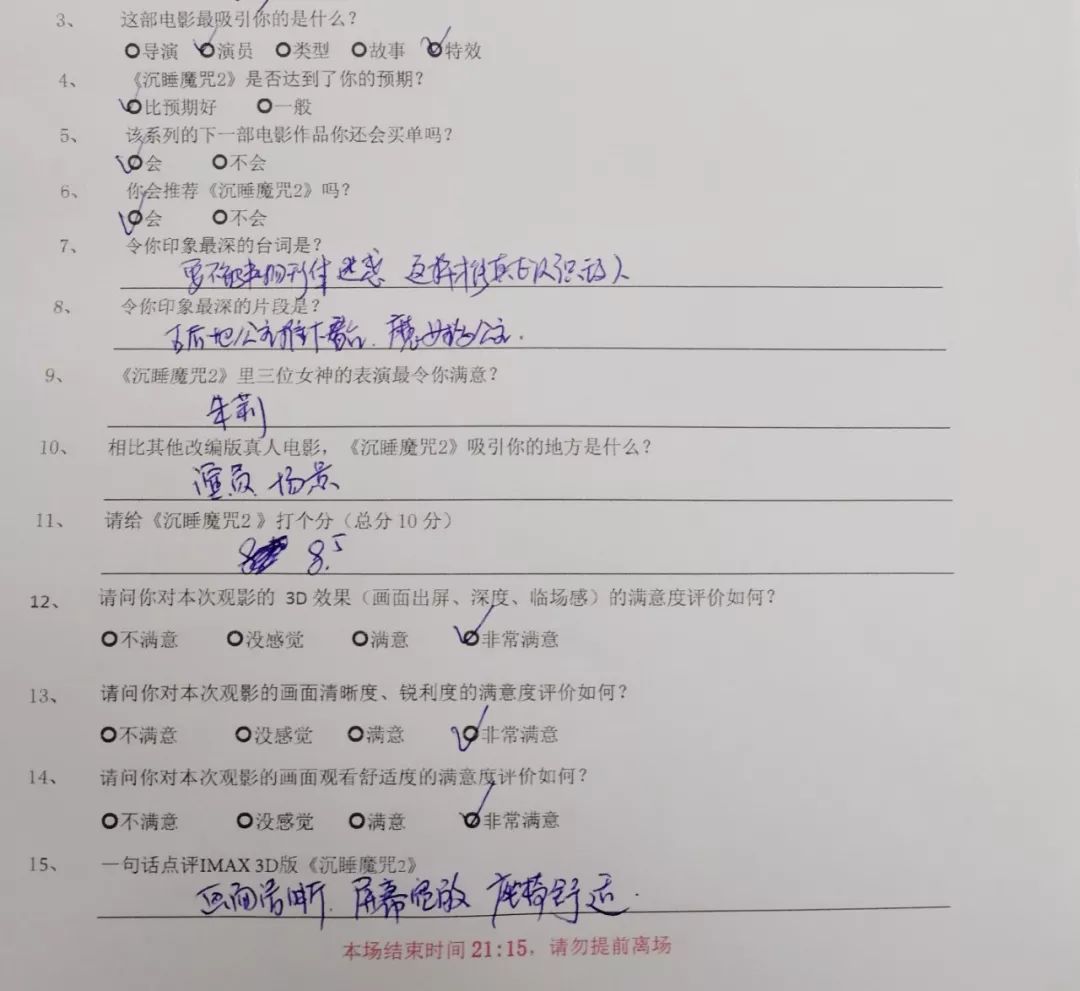 3、 这部电影最吸引你的是什么？
导演 演员 类型 故事 特效
4、 《沉睡魔咒2》是否达到了你的预期？
比预期好 一般
5、 该系列的下一部电影作品你还会买单吗？
会 不会
6、 你会推荐《沉睡魔咒2》吗？
会 不会
7、 令你印象最深的台词是？
要不能被 形体迷惑 这样才能真 认识 人
8、 令你印象最深的片段是？
公主推下 魔女 公主.
9、 《沉睡魔咒2》里三位女神的表演最令你满意？
朱莉
10、 相比其他改编版真人电影，《沉睡魔咒2》吸引你的地方是什么？
演员 场景
11、 请给《沉睡魔咒2 》打个分（总分10 分）
8.5
12、 请问你对本次观影的 3D 效果（画面出屏、深度、临场感）的满意度评价如何？
不满意 没感觉 满意 非常满意
13、 请问你对本次观影的画面清晰度、锐利度的满意度评价如何？
不满意 没感觉 满意 非常满意
14、 请问你对本次观影的画面观看舒适度的满意度评价如何？
不满意 没感觉 满意 非常满意
15、 一句话点评IMAX 3D版《沉睡魔咒2》
画面清晰. 屏幕 座椅舒适.
本场结束时间 21:15，请勿提前离场